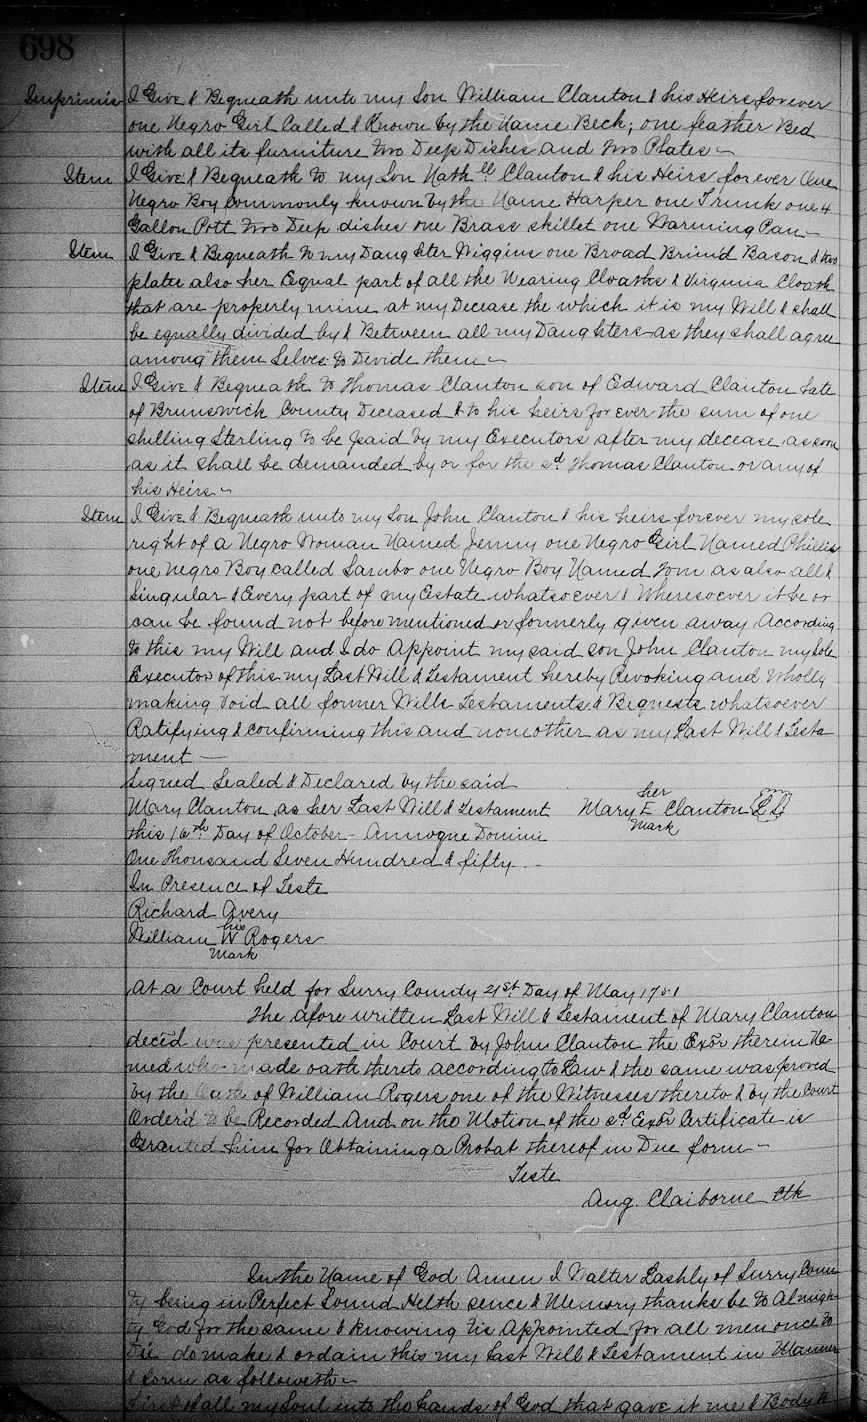 698
Imprimis I Give & Bequeath unto my Son William Clanton & his Heirs forever
one Negro Girl Called & Known by the Name Beck; one feather Bed
with all its furniture two Deep Dishes and two Plates
Item I Give & Bequeath to my Son Nathll Clanton & his Heirs for ever One
Negro Boy commonly known by the Name Harper one Trunk one 4
Gallon Pott two Deep dishes one Brass skillet one Warming Pan
Item I Give & Bequeath to my Daughter Wiggins one Broad Brim'd Bason & two
plates also her Equal part of all the Wearing Cloaths & Virginia Cloath
that are properly mine at my Decease the which it is my Will & shall
be equally divided by & Between all my Daughters as they shall agree
among them Selves to Divide them
Item I Give & Bequeath to Thomas Clanton son of Edward Clanton Late
of Brunswick County Deceased & to his heirs for ever the sum of one
shilling Sterling to be paid by my Executors after my decease as soon
as it shall be demanded by or for the sd Thomas Clanton or any of
his Heirs
Item I Give & Bequeath unto my Son John Clanton & his heirs forever my sole
right of a Negro Woman Named Jenny one Negro Girl Named Phillis
one Negro Boy called Sambo one Negro Boy Named Tom as also all &
Singular & Every part of my Estate whatsoever & Wheresoever it be or
can be found not before mentioned or formerly given away According
to this my Will and I do Appoint my said son John Clanton my Sole
Executor of this my Last Will & Testament hereby Revoking and Wholly
making void all former Wills Testaments & Bequests whatsoever
Ratifying & confirming this and none other as my Last Will & Testa
ment
Signed Sealed & Declared by the said
Mary Clanton as her Last Will & Testament
this 16th Day of October Annoque Domini
One Thousand Seven Hundred & fifty
her
Mary E Clanton LS
Mark
In Presence of Teste
Richard Avery
his
William W Rogers
Mark
At a Court held for Surry County 21st Day of May 1751
The afore written Last Will & Testament of Mary Clanton
deced was presented in Court by John Clanton the Exor therein Na-
med who made oath thereto according to Law & the same was proved
by the Oath of William Rogers one of the Witnesses thereto & by the Court
Order'd to be Recorded And on the Motion of the sd Exor Certificate is
Granted him for Obtaining a Probat thereof in Due form
Teste
Aug. Claiborne Clk
In the Name of God Amen I Walter Lashly of Surry Coun
ty being in Perfect Sound Helth sence & Memory thanks be to Almigh-
ty God for the same & knowing tis Appointed for all men once to
Die do make & ordain this my Last Will & Testament in Manner
& form as followeth
First of all my Soul into the hands of God that gave it me & Body to